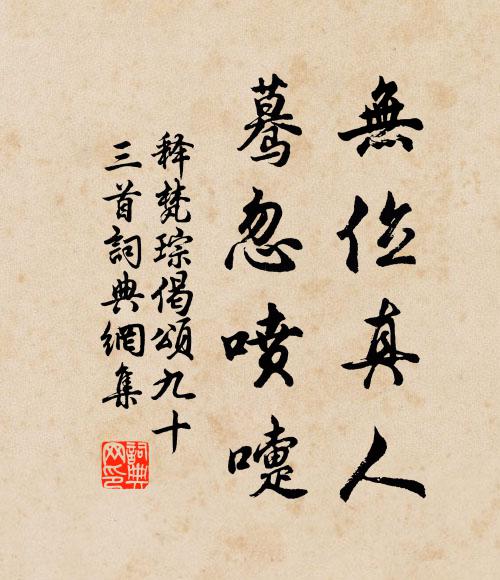 無位真人
驀忽噴嚏
釋梵琮偈頌九十
三首詞典網集
詞典
网印